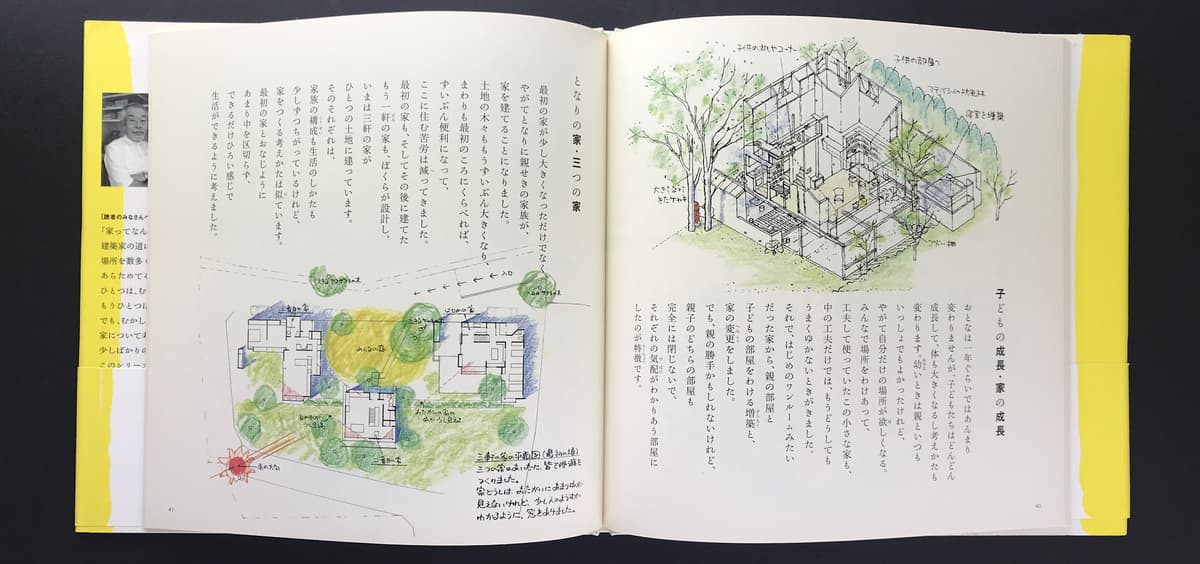 子どもの成長・家の成長
おとなは一年ぐらいではあんまり
変わりませんが、子どもたちはどんどん
成長して、体も大きくなるし考えかたも
変わります。幼いときは親といつも
いっしょでもよかったけれど、
やがて自分だけの場所が欲しくなる。
みんなで場所をわけあって、
工夫して使っていたこの小さな家も、
中の工夫だけでは、もうどうしても
うまくゆかないときがきました。
それで、はじめのワンルームみたい
だった家から、親の部屋と
子どもの部屋をわける増築と、
家の変更をしました。
でも、親の勝手かもしれないけれど、
親子のどちらの部屋も
完全には閉じないで、
それぞれの気配がわかりあう部屋に
したのが特徴です。
子供の机やコーナー
子供の部屋へ
寝室を増築
大きくなって
きたケヤキ
40
となりの家・三つの家
最初の家が少し大きくなっただけでなく
やがてとなりに親せきの家族が、
家を建てることになりました。
土地の木々ももうずいぶん大きくなり、
まわりも最初のころにくらべれば、
ずいぶん便利になって、
ここに住む苦労は減ってきました。
最初の家も、そしてその後に建てた
もう一軒の家も、ぼくらが設計し、
いまは三軒の家が
ひとつの土地に建っています。
そのそれぞれは、
家族の構成も生活のしかたも
少しずつちがっているけれど、
家をつくる考えかたは似ています。
最初の家とおなじように
あまり中を区切らず、
できるだけひろい感じで
生活ができるように考えました。
入口
はじめの家
みんなの庭
三軒の家の平面図(最初の頃)
三つの家のあいだに、皆で使う庭を
つくりました。
家どうしは、おたがいにあまり中が
見えないけれど、少し人のようすが
わかるように、窓をあけました。
41
「読者のみなさんへ
「家ってなん
建築家の道に
場所を数多く
あらためてそ
ひとつは、む
もうひとつは
でも、むかし
家について考
少しばかりの
このシリーズ